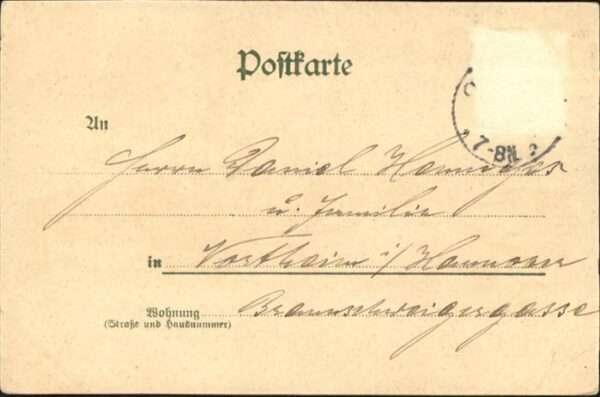 Postkarte
7-8N.
An
Herrn Daniel
u. Familie
in Northeim i/ Hannover
Wohnung Braunschweigergasse
(Straße und Hausnummer)